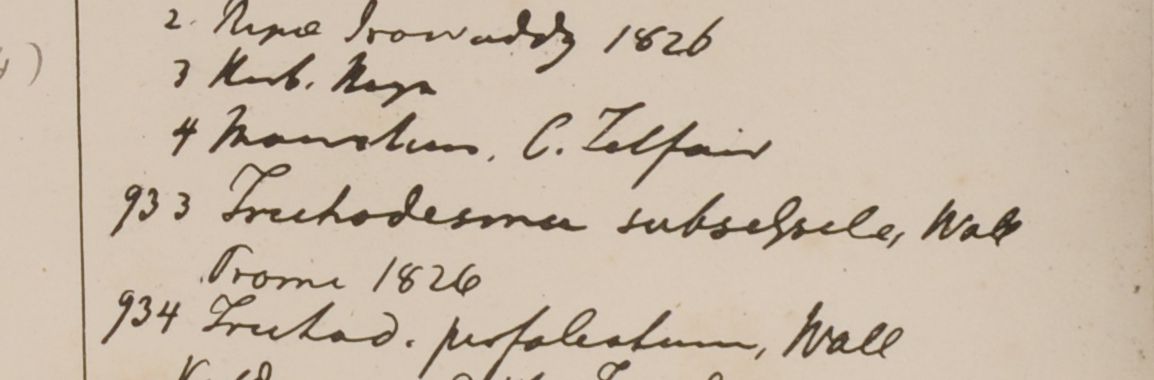 2. Ripæ Irowaddy 1826
3 Herb. Heyn
4 Mauritius, C. Telfair
933 Trichodesma subsessile, Wall
Prome 1826
934 Trichod. perfoliatum, Wall